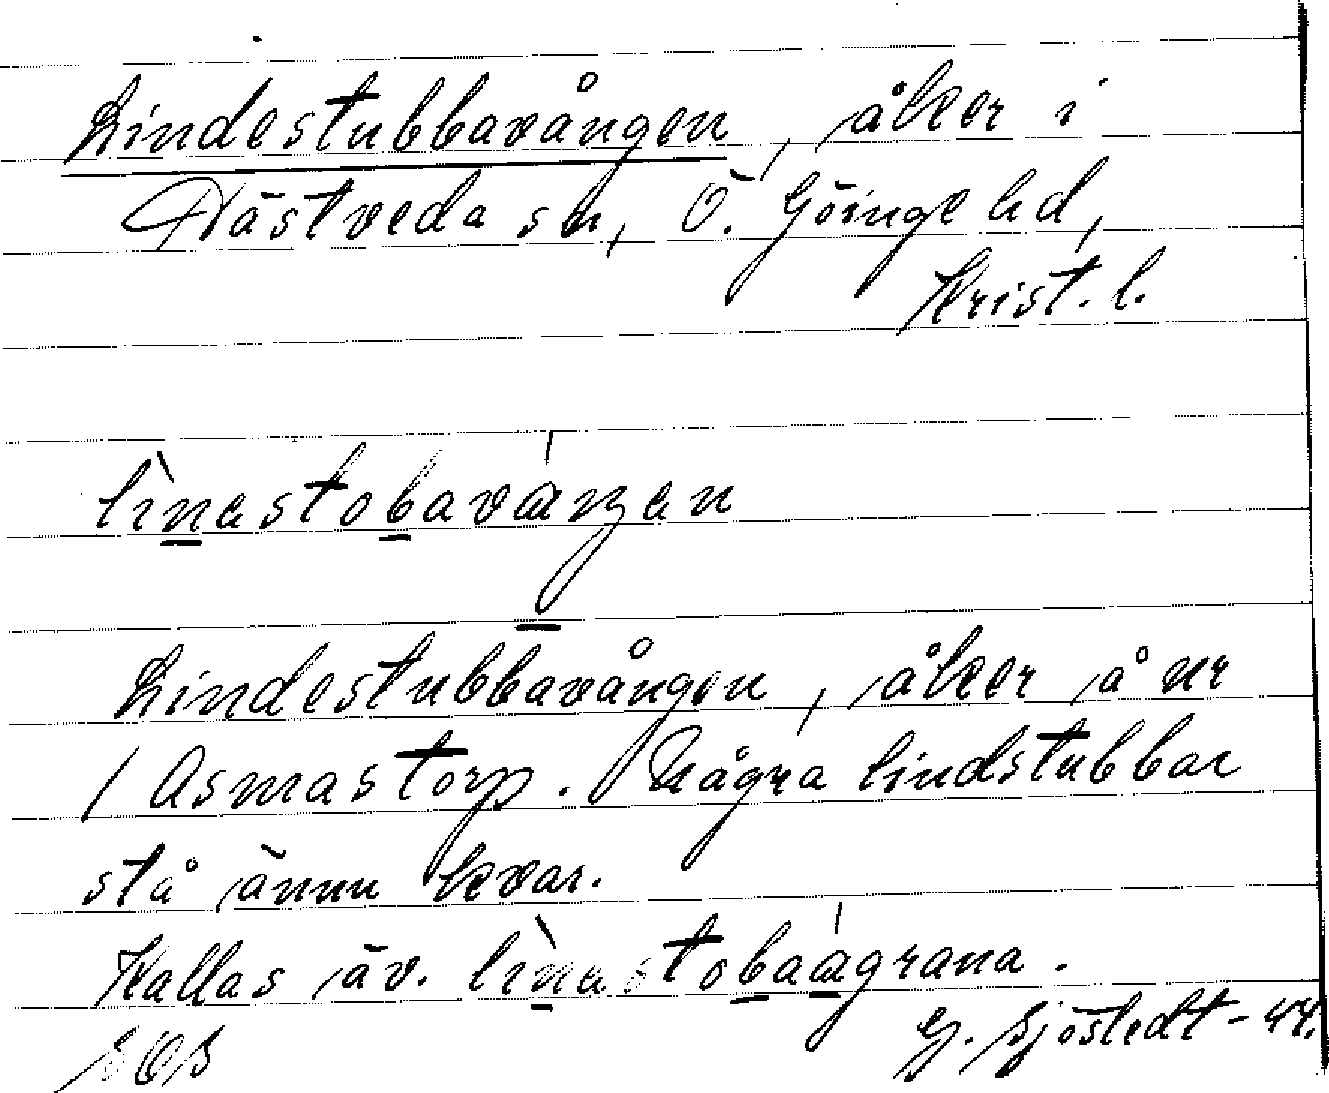 Lindestubbavången, åker i
Hästveda sn, Ö. Göinge hd,
Krist. l.
lìnəstobaváŋən
Lindestubbavången, åker å nr
1 Asmastorp. Några lindstubbar
stå ännu kvar.
Kallas äv. lìnəstobaágrana.
G. Sjöstedt - 44.